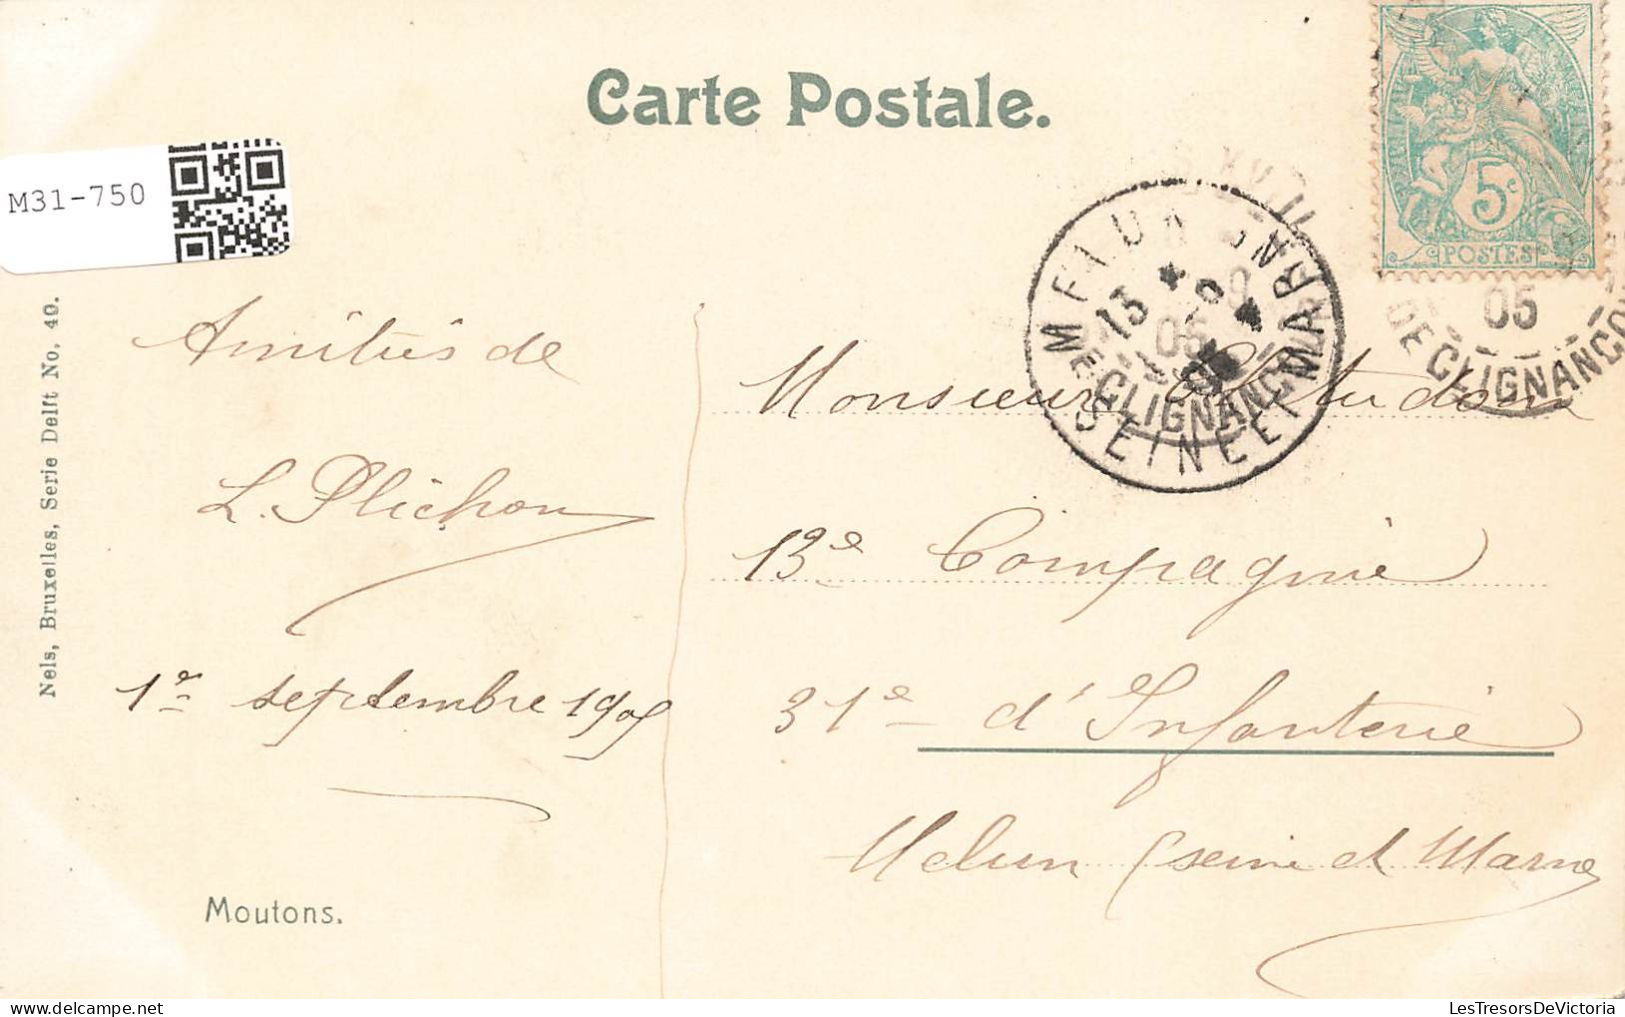 Carte Postale.
M31-750
Nels, Bruxelles, Serie Delft No. 40.
5c
POSTES
MEAUX
13
05
SEINE ET MARNE
DE CLIGNANCO
05
DE CLIGNANCO
Amitiés de
L. Plichon
1er septembre 1905
Monsieur
13e Compagnie
31e d'Infanterie
Melun (Seine et Marne
Moutons.
LesTresorsDeVictoria